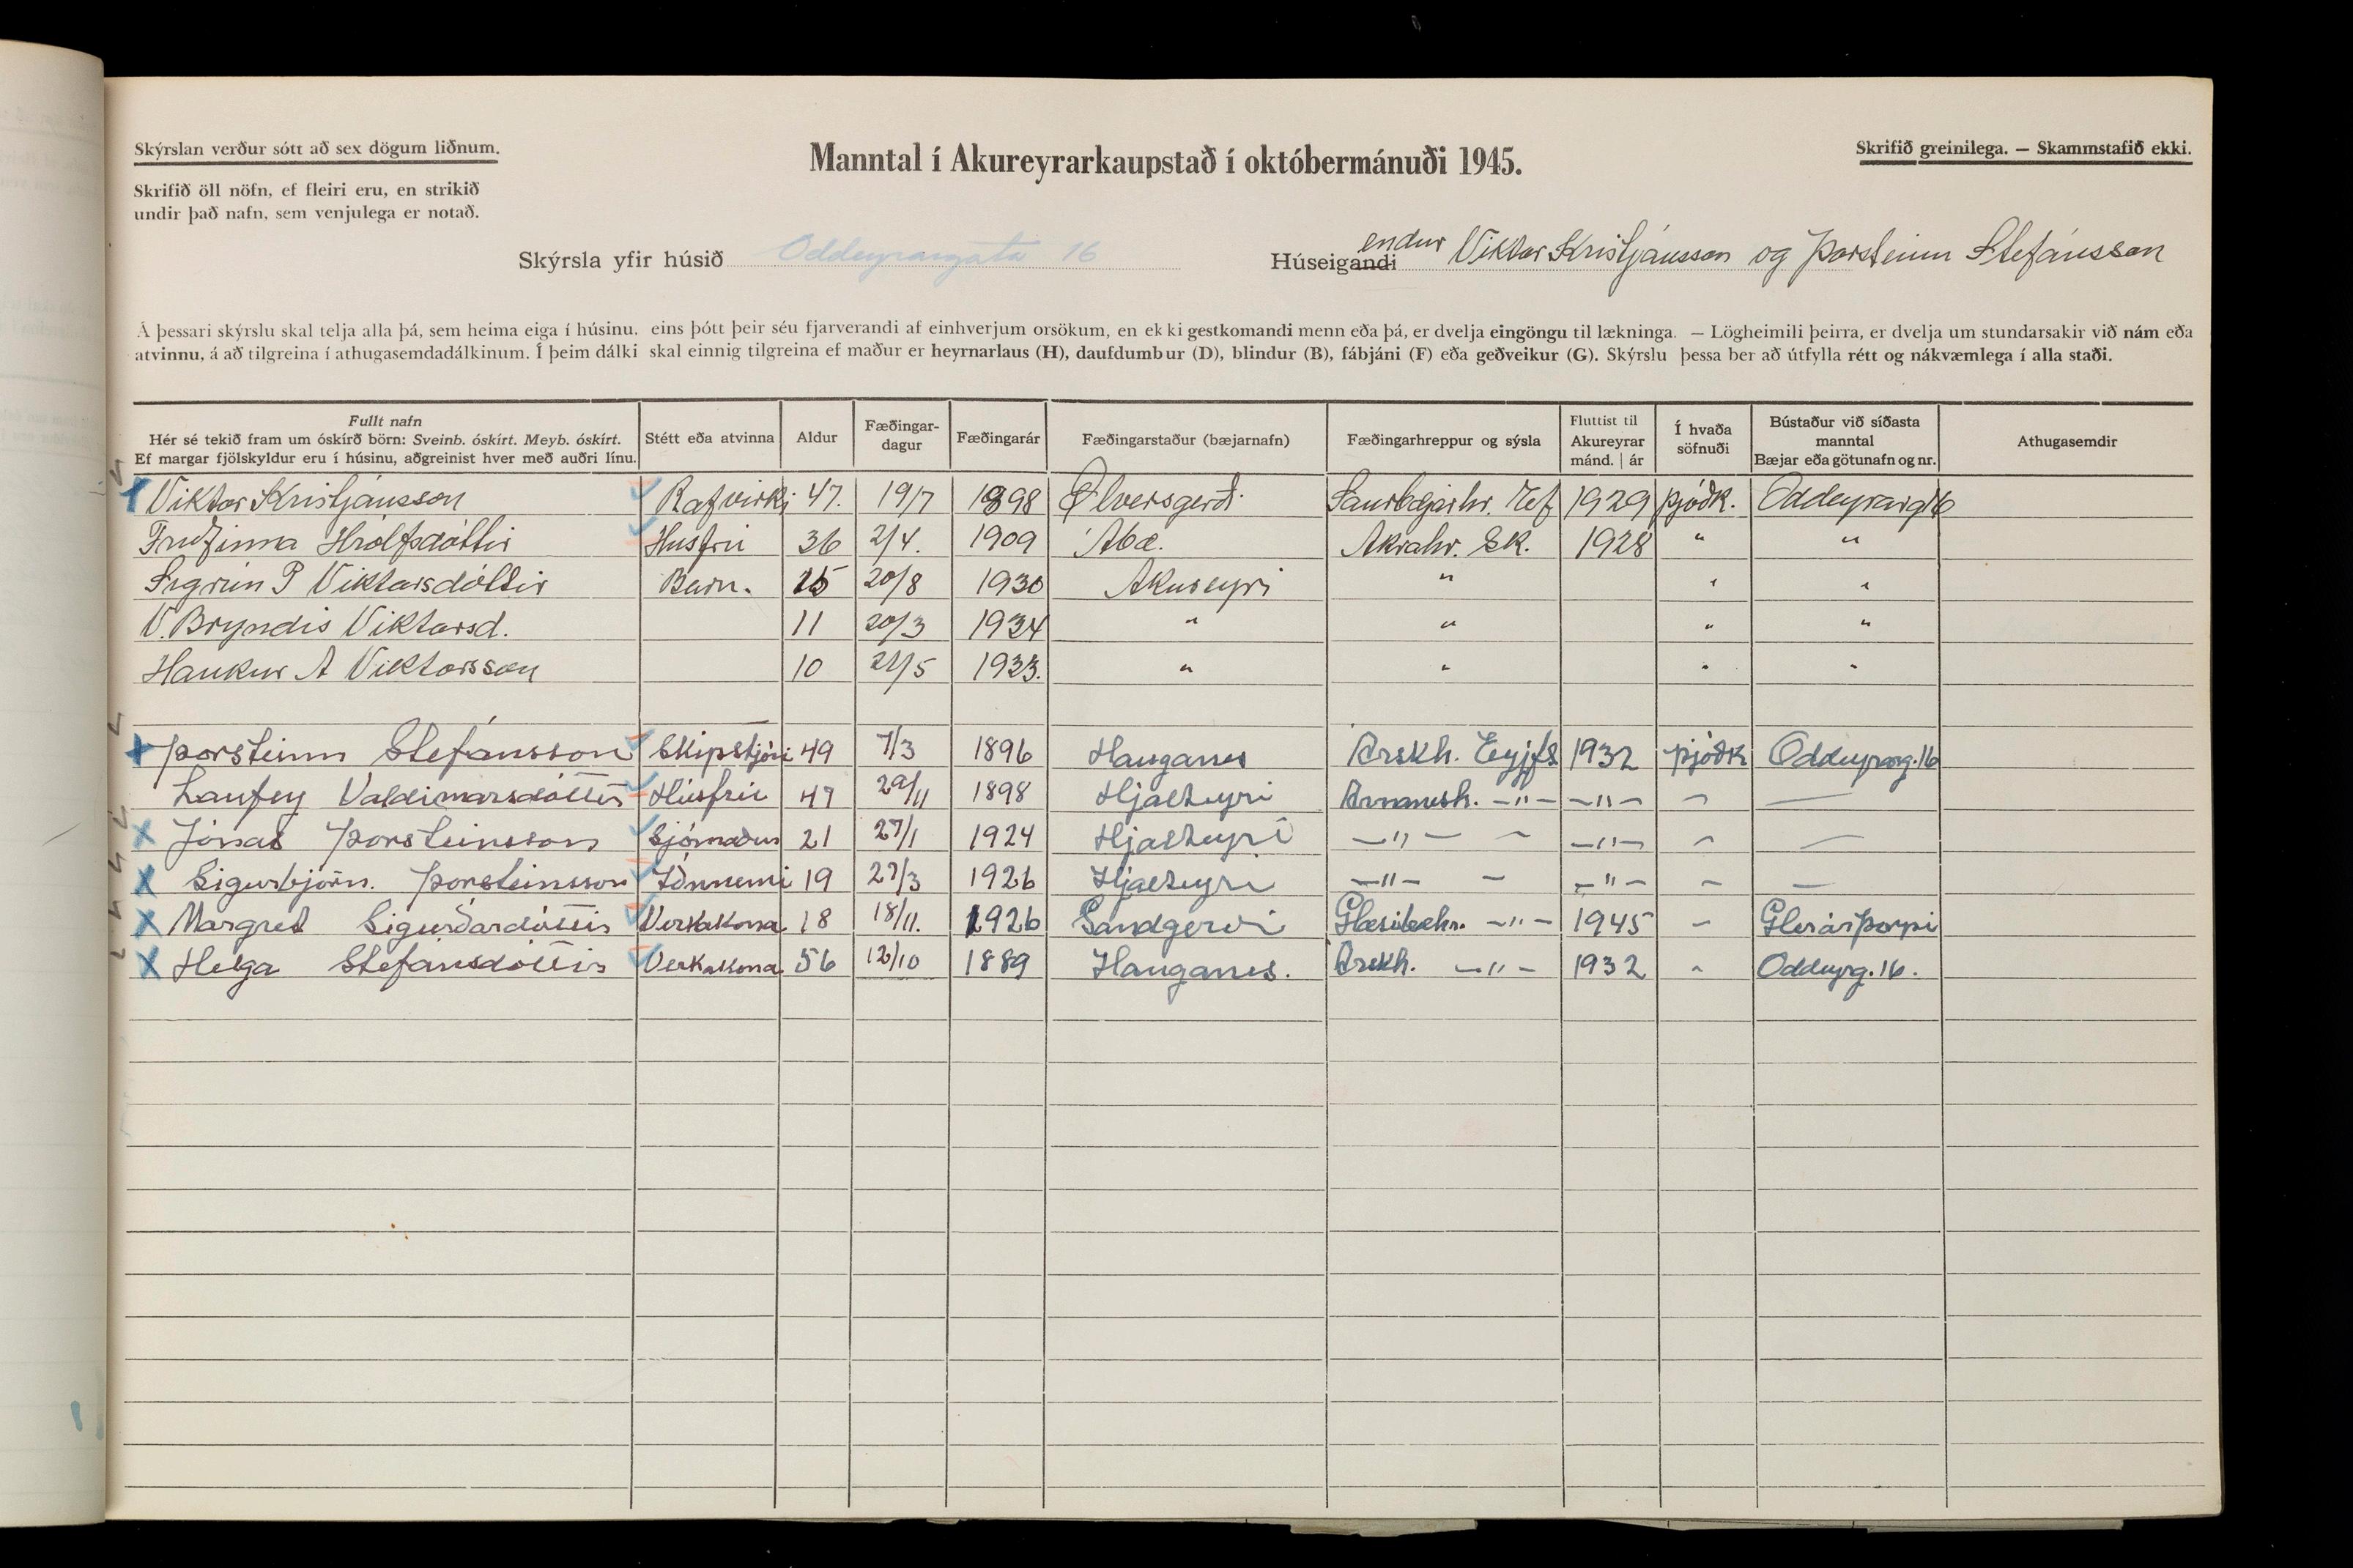 Skýrslan verður sótt að sex dögum liðnum.
Manntal í Akureyrarkaupstað í októbermánuði 1945.
Skrifið greinilega. — Skammstafið ekki.
Skrifið öll nöfn, ef fleiri eru, en strikið
undir það nafn, sem venjulega er notað.
Skýrsla yfir húsið Oddeyrargata 16
Húseigandi endur Viktor Kristjánsson og Þorsteinn Stefánsson
Á þessari skýrslu skal telja alla þá, sem heima eiga í húsinu, eins þótt þeir séu fjarverandi af einhverjum orsökum, en ekki gestkomandi menn eða þá, er dvelja eingöngu til lækninga. — Lögheimili þeirra, er dvelja um stundarsakir við nám eða
atvinnu, á að tilgreina í athugasemdadálkinum. Í þeim dálki skal einnig tilgreina ef maður er heyrnarlaus (H), daufdumbur (D), blindur (B), fábjáni (F) eða geðveikur (G). Skýrslu þessa ber að útfylla rétt og nákvæmlega í alla staði.
Fullt nafn
Hér sé tekið fram um óskírð börn: Sveinb. óskírt. Meyb. óskírt.
Ef margar fjölskyldur eru í húsinu, aðgreinist hver með auðri línu.
Stétt eða atvinna
Aldur
Fæðingar-
dagur
Fæðingarár
Fæðingarstaður (bæjarnafn)
Fæðingarhreppur og sýsla
Fluttist til
Akureyrar
mánd. | ár
Í hvaða
söfnuði
Bústaður við síðasta
manntal
Bæjar eða götunafn og nr.
Athugasemdir
Viktor Kristjánsson Rafvirki 47. 19/7 1898 Ölversgerði Saurbæjarhr. Eyf 1929 þjóðk. Oddeyrarg 16
Hrólfsdóttir Húsfrú 36 2/4. 1909 Abæ. Akrahr. Sk. 1928 " "
Sigrún P Viktorsdóttir Barn. 15 20/8 1930 Akureyri " " "
V. Bryndís Viktorsd. 11 20/3 1934 " " " "
Haukur A Viktorsson 10 1935. " " " "
Þorsteinn Stefánsson Skipstjóri 49 7/3 1896 Hauganes Arskh. Eyjfs 1932 þjóðk Oddeyrarg. 16
Laufey Valdimarsdóttir Húsfrú 47 29/11 1898 Hjalteyri Arnarnesh. —"— —"— — —
Jónas Þorsteinsson Sjómaður 21 27/1 1924 Hjalteyri —"— — —"— — —
Sigurbjörn. Þorsteinsson Iðnnemi 19 27/3 1926 Hjalteyri —"— — —"— — —
Margret Sigurðardóttir Verkakona 18 18/11. 1926 Sandgerði Glæsibæhr. —"— 1945 — Glerárþorpi
Helga Stefánsdóttir Verkakona 56 12/10 1889 Hauganes. Arskh. —"— 1932 — Oddeyrg. 16.